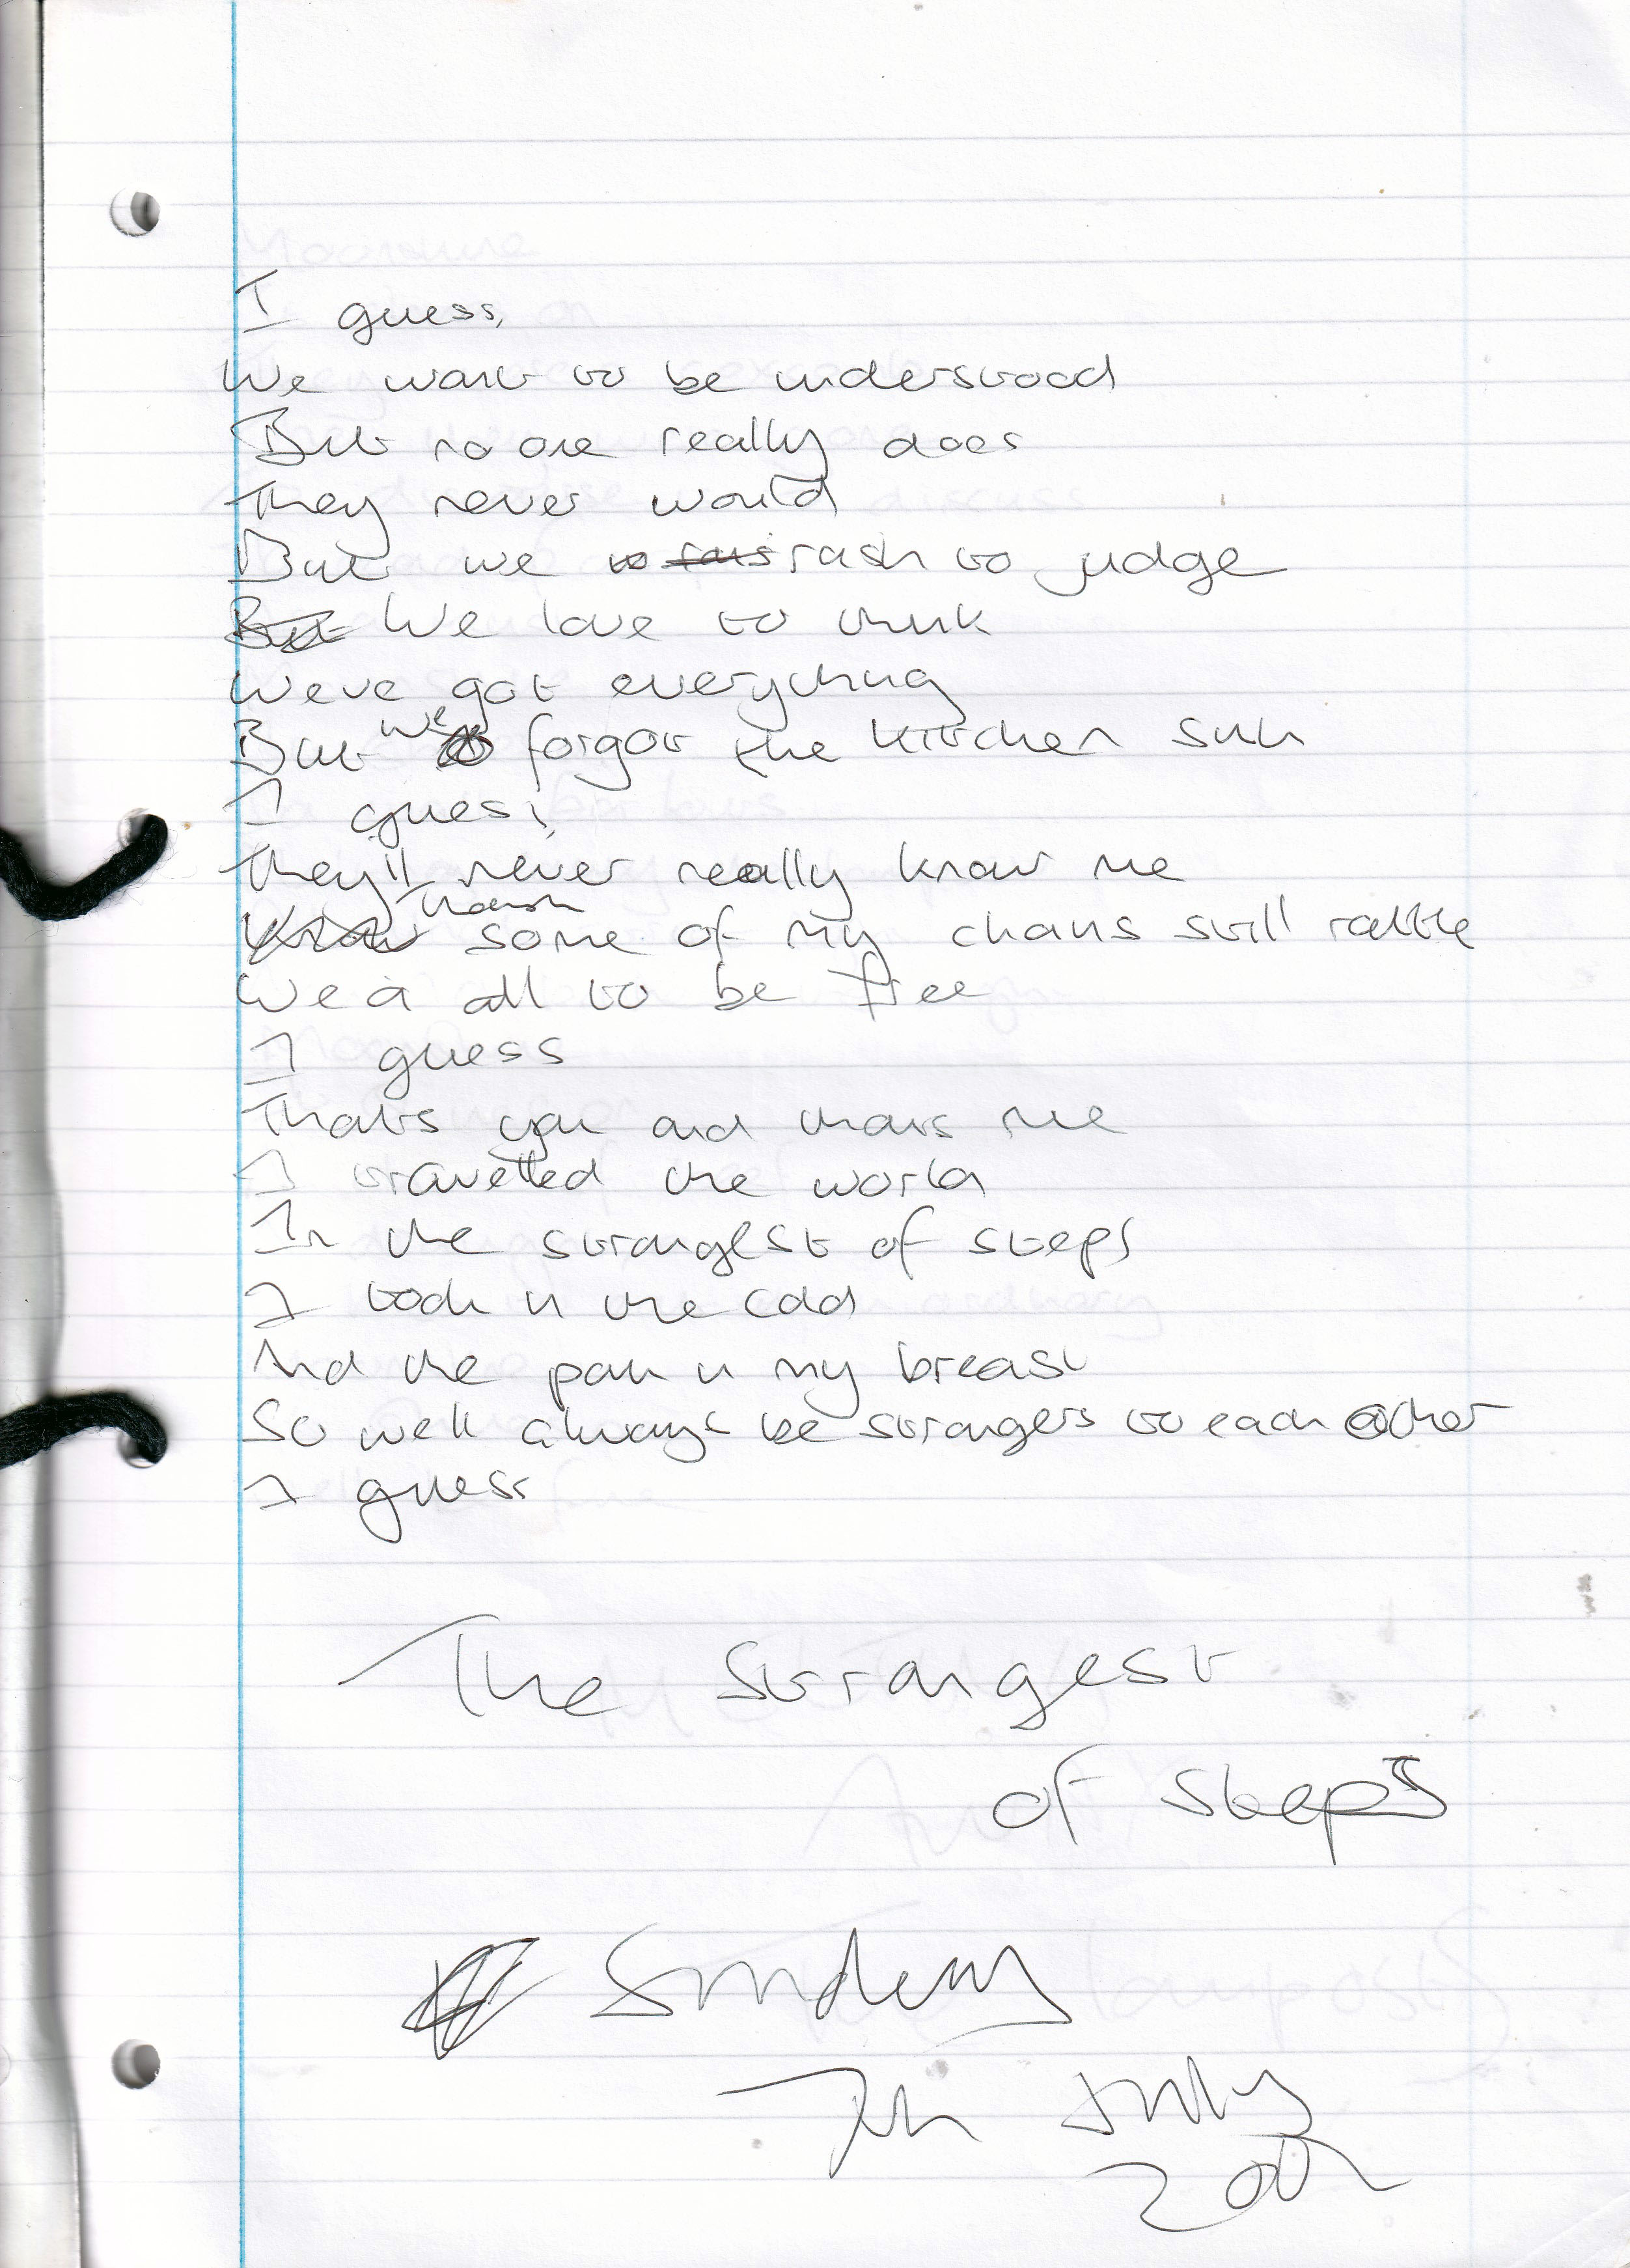 I guess,
We want to be understood
But no one really does
They never would
But we rash to judge
We love to think
Weve got everything
But we forgot the kitchen sink
I guess,
They'll never really know me
Though some of my chains still rattle
We all to be free
I guess
Thats you and thats me
I travelled the world
In the strangest of steps
I took in the cold
And the pain in my breast
So well always be strangers to each other
I guess
The Strangest
of steps
Sunday
7th July